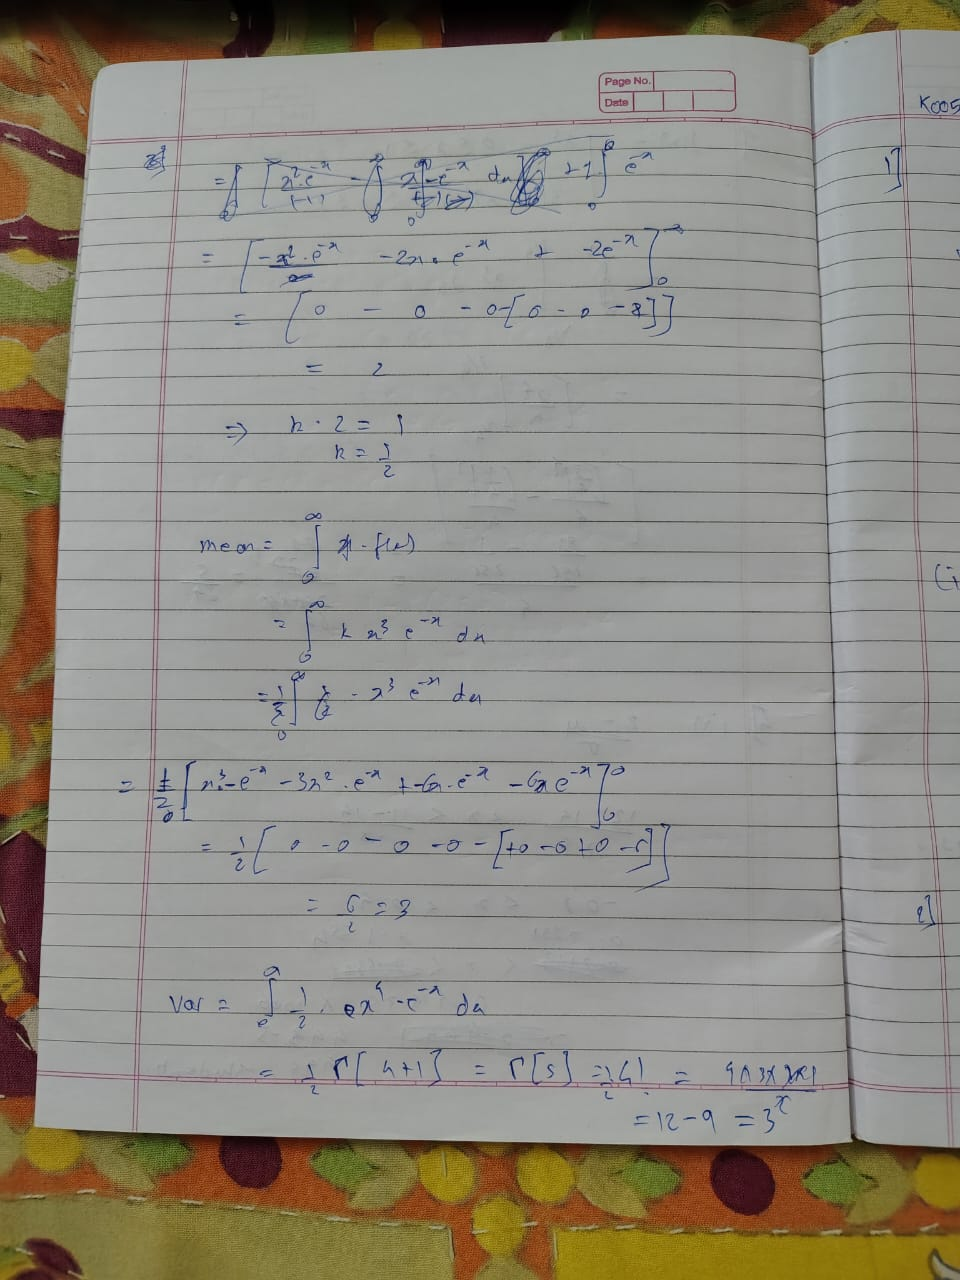 Page No.
Date
K005
1]
= [-x²·e⁻ˣ -2x·e⁻ˣ + -2e⁻ˣ]₀
= [0 - 0 - 0-[0 - 0 -2]]
= 2
⇒ k·2 = 1
k = 1/2
mean = ∫₀^∞ x·f(x)
= ∫₀^∞ k x³ e⁻ˣ dx
= 1/2 ∫₀^∞ x³ e⁻ˣ dx
= 1/2 [x³-e⁻ˣ -3x²·e⁻ˣ +-6x·e⁻ˣ -6 e⁻ˣ]₀
= 1/2 [0 -0 -0 -0 -[+0 -0 +0 -6]]
= 6/2 = 3
(i
2]
Var = ∫ 1/2 · x⁴-e⁻ˣ dx
= 1/2 Γ[4+1] = Γ[5] = 1/2 4! =
= 12-9 = 3